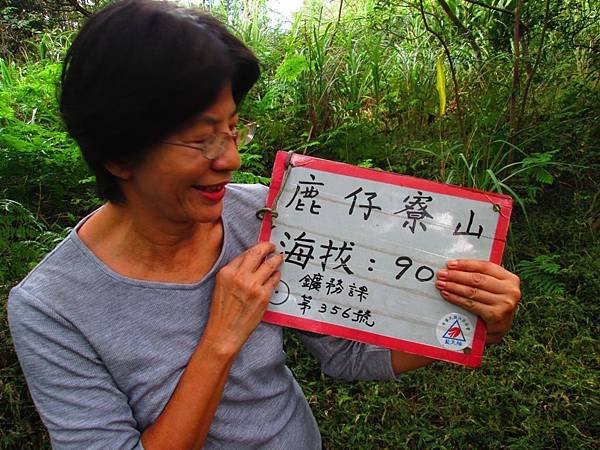 鹿仔寮山
海拔：90
鑛務課
第356號